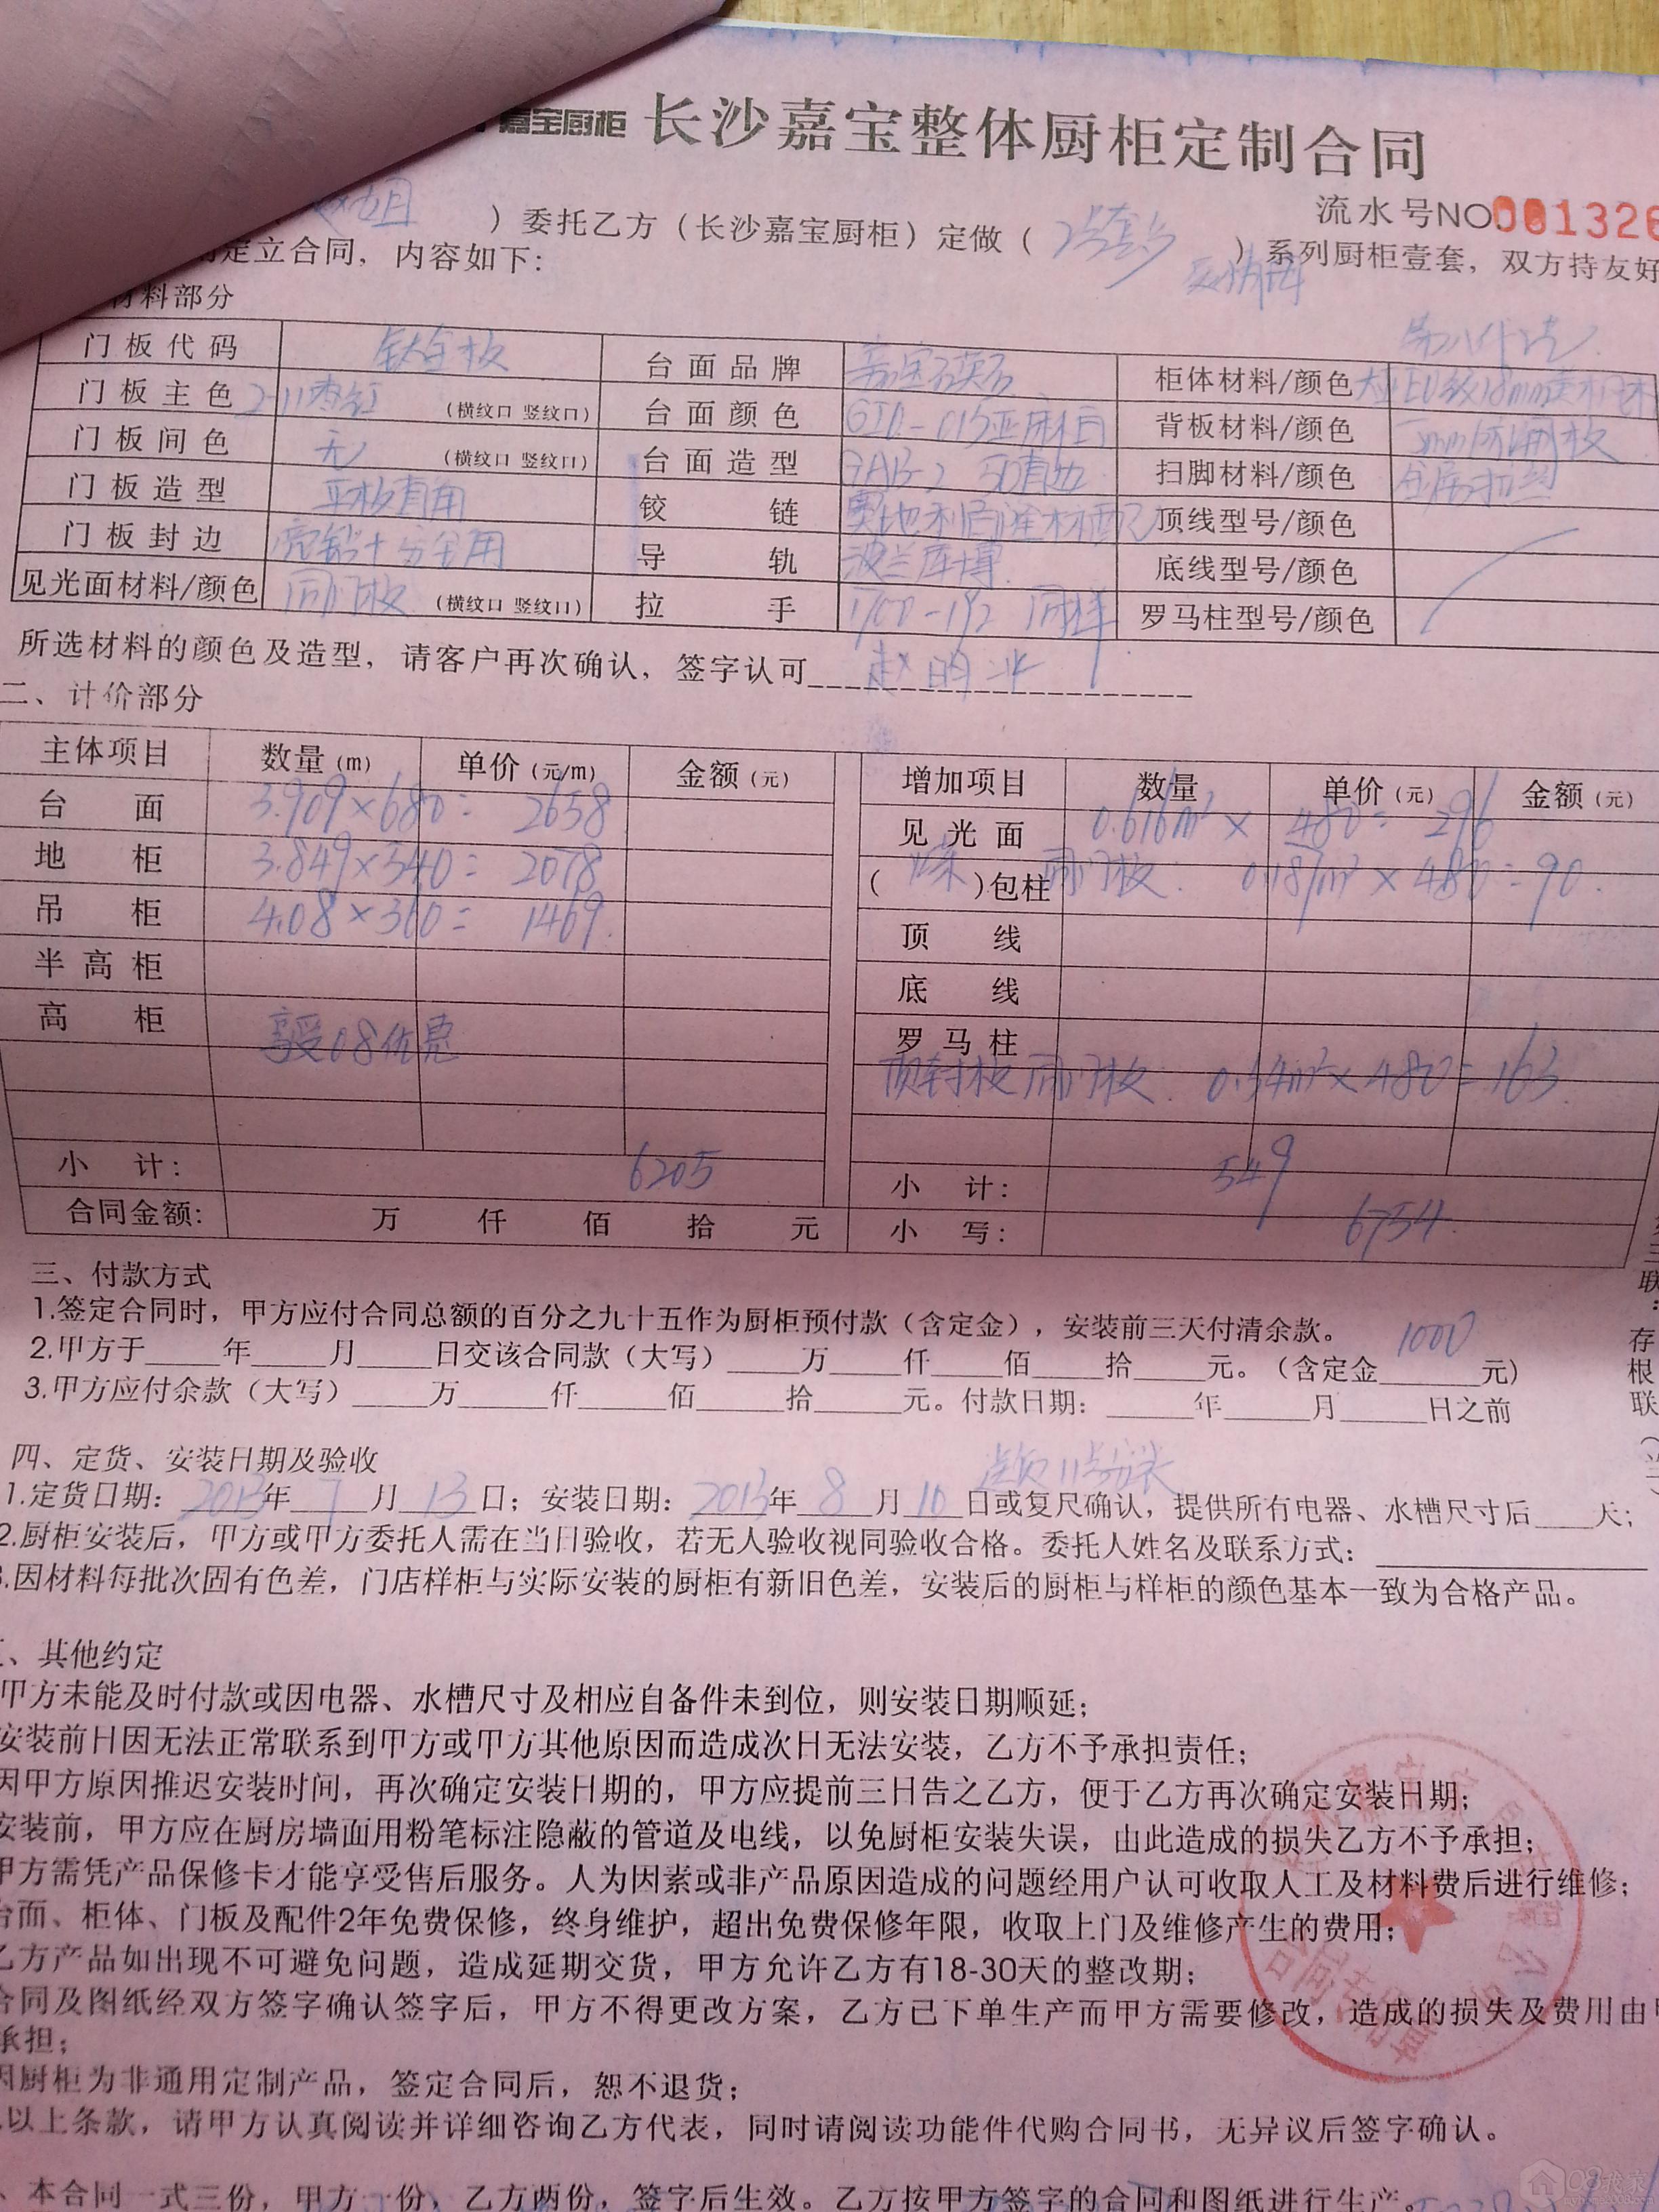 嘉宝厨柜 长沙嘉宝整体厨柜定制合同
流水号NO 001326
）委托乙方（长沙嘉宝厨柜）定做（ ）系列厨柜壹套，双方持友好
定立合同，内容如下：
材料部分
门板代码 钛金板 台面品牌 嘉宝石英石 柜体材料/颜色
门板主色 2-11枣红 （横纹口 竖纹口） 台面颜色 背板材料/颜色
门板间色 无 （横纹口 竖纹口） 台面造型 扫脚材料/颜色 金属拉丝
门板造型 平板直角 铰链 顶线型号/颜色
门板封边 导轨 波兰库博 底线型号/颜色
见光面材料/颜色 同门板 （横纹口 竖纹口） 拉手 同样 罗马柱型号/颜色
所选材料的颜色及造型，请客户再次确认，签字认可
二、计价部分
主体项目 数量（m） 单价（元/m） 金额（元） 增加项目 数量 单价（元） 金额（元）
台面 3.909×680= 2658 见光面 0.616m²× 480= 296
地柜 3.849×540= 2078 （ ）包柱 同门板： 0.187m²×480=90.
吊柜 4.08×360= 1469. 顶线
半高柜 底线
高柜 享受08优惠 罗马柱
顶封板同门板： 0.34m²×480=163.
小计： 6205 小计： 549
合同金额： 万 仟 佰 拾 元 小写： 6754.
三、付款方式
1.签定合同时，甲方应付合同总额的百分之九十五作为厨柜预付款（含定金），安装前三天付清余款。
2.甲方于____年____月____日交该合同款（大写）____万____仟____佰____拾____元。（含定金1000元）
3.甲方应付余款（大写）____万____仟____佰____拾____元。付款日期：____年____月____日之前
四、定货、安装日期及验收
1.定货日期：2013年7月13日；安装日期：2013年8月10日或复尺确认，提供所有电器、水槽尺寸后____天；
2.厨柜安装后，甲方或甲方委托人需在当日验收，若无人验收视同验收合格。委托人姓名及联系方式：
3.因材料每批次固有色差，门店样柜与实际安装的厨柜有新旧色差，安装后的厨柜与样柜的颜色基本一致为合格产品。
、其他约定
甲方未能及时付款或因电器、水槽尺寸及相应自备件未到位，则安装日期顺延；
安装前日因无法正常联系到甲方或甲方其他原因而造成次日无法安装，乙方不予承担责任；
因甲方原因推迟安装时间，再次确定安装日期的，甲方应提前三日告之乙方，便于乙方再次确定安装日期；
安装前，甲方应在厨房墙面用粉笔标注隐蔽的管道及电线，以免厨柜安装失误，由此造成的损失乙方不予承担；
甲方需凭产品保修卡才能享受售后服务。人为因素或非产品原因造成的问题经用户认可收取人工及材料费后进行维修；
台面、柜体、门板及配件2年免费保修，终身维护，超出免费保修年限，收取上门及维修产生的费用；
乙方产品如出现不可避免问题，造成延期交货，甲方允许乙方有18-30天的整改期；
合同及图纸经双方签字确认签字后，甲方不得更改方案，乙方已下单生产而甲方需要修改，造成的损失及费用由甲
承担；
因厨柜为非通用定制产品，签定合同后，恕不退货；
以上条款，请甲方认真阅读并详细咨询乙方代表，同时请阅读功能件代购合同书，无异议后签字确认。
、本合同一式三份，甲方一份，乙方两份，签字后生效。乙方按甲方签字的合同和图纸进行生产。
存根联
合同专用章